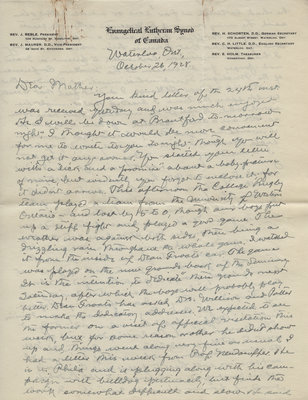 Evangelical Lutheran Synod
of Canada
REV. J. REBLE, PRESIDENT
REV. J. MAURER, D.D., VICE PRESIDENT
REV. H. SCHORTEN, D.D., GERMAN SECRETARY
REV. C. H. LITTLE, D.D., ENGLISH SECRETARY
WATERLOO, ONT.
REV. E. HOLM, TREASURER
Waterloo Ont.
October 26 1928.
Dear Mother,
Your kind letter of the 24th inst
was received yesterday and was much enjoyed.
As I will be down at Brantford to-morrow
night, I thought it would be more convenient
for me to write to you tonight, though you will
not get it any sooner. You started your letter
with a and a promise about a baby picture
of mine but evidently you forgot to enclose it, for
it didn't arrive. This afternoon the College Rugby
team played a team from the University of Western
Ontario and lost by 5 to 0, though our boys put
up a stiff fight and played a good game. The
weather was against both sides, there being a
drizzling rain throughout the whole game. I watched
it from the inside of Dean Froats' car. The game
was played on the new grounds back of the Seminary.
It is the intention to dedicate these grounds next
Saturday, after which the boys will probably play
here. Dean Froats has asked Drs. William and Potter
to make the dedicatory addresses. We expected to see
the former on a visit of official visitation this
week but for some reason or other he didn't show
up and things went along very fine as usual. I
had a letter this week from Prof. He
is in Phila and is plugging along with his cam-
paign with bulldog pertinacity, but finds the
work somewhat difficult and slow. He said